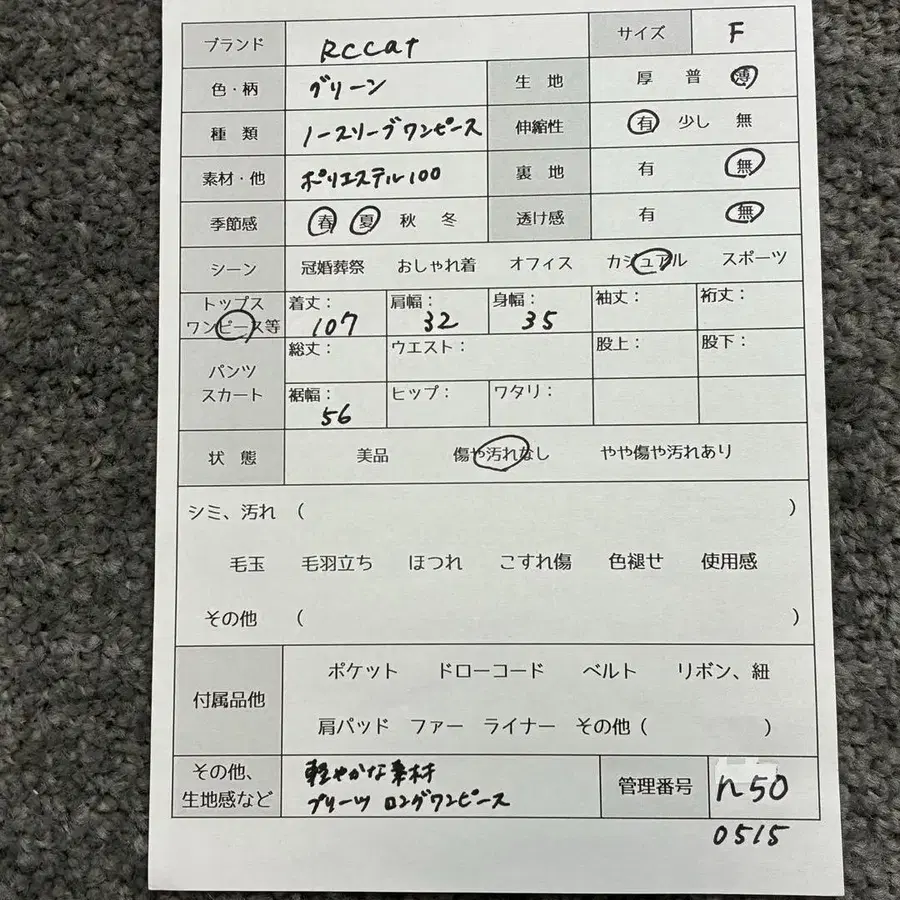 ブランド Rccat サイズ F
色・柄 グリーン 生 地 厚 普 薄
種 類 ノースリーブワンピース 伸縮性 有 少し 無
素材・他 ポリエステル100 裏 地 有 無
季節感 春 夏 秋 冬 透け感 有 無
シーン 冠婚葬祭 おしゃれ着 オフィス カジュアル スポーツ
トップス 着丈: 肩幅: 身幅: 袖丈: 裄丈:
ワンピース等 107 32 35
パンツ 総丈: ウエスト: 股上: 股下:
スカート 裾幅: ヒップ: ワタリ:
56
状 態 美品 傷や汚れなし やや傷や汚れあり
シミ、汚れ ( )
毛玉 毛羽立ち ほつれ こすれ傷 色褪せ 使用感
その他 ( )
付属品他 ポケット ドローコード ベルト リボン、紐
肩パッド ファー ライナー その他 ( )
その他、 軽やかな素材
生地感など プリーツ ロングワンピース 管理番号 n50
0515